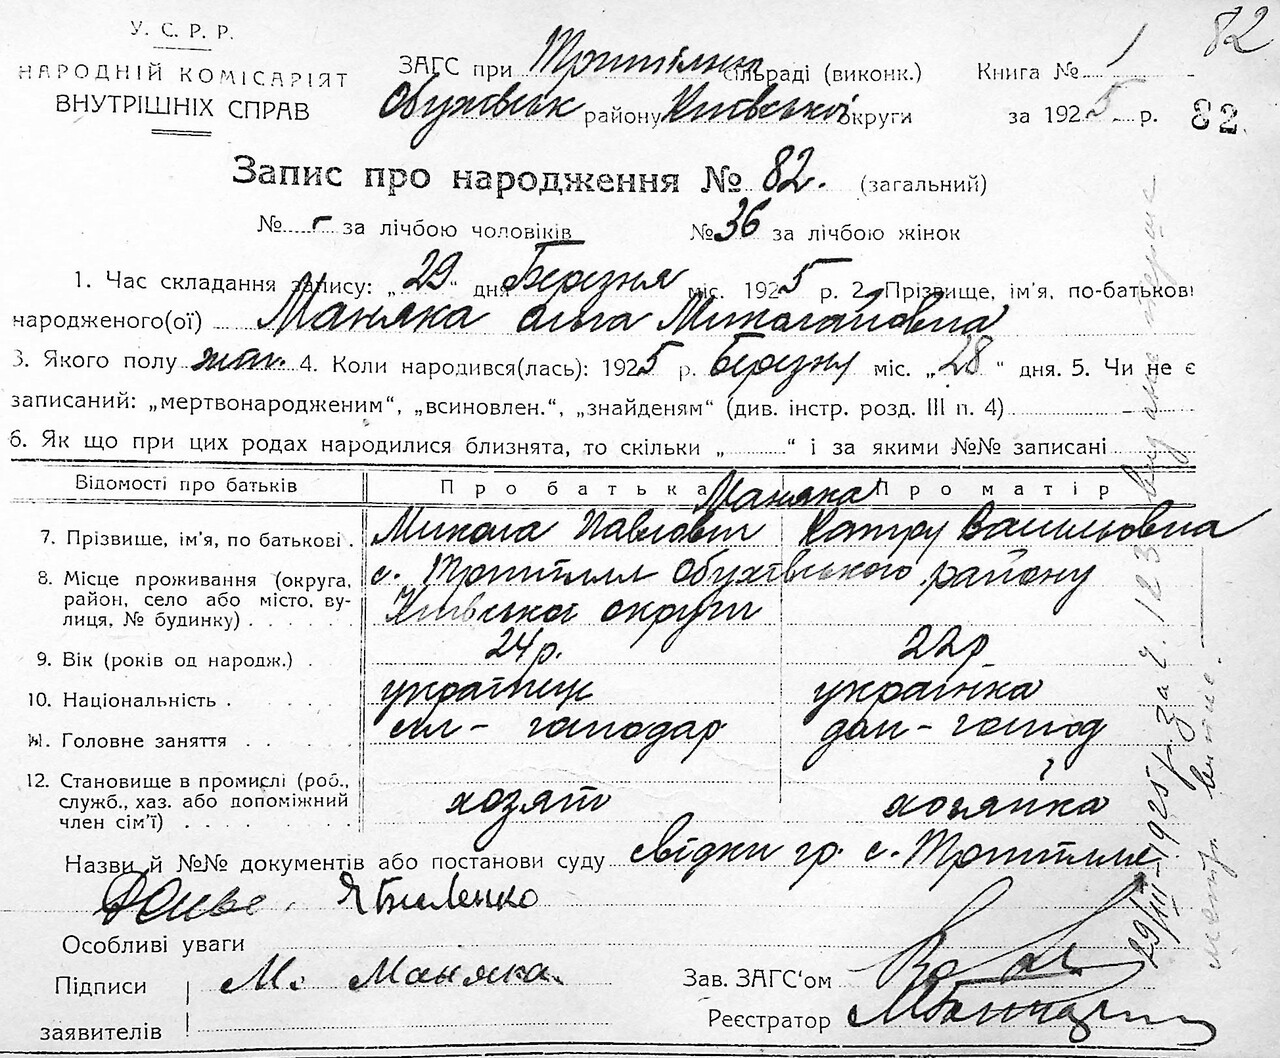 У. С. Р. Р.
НАРОДНІЙ КОМІСАРІЯТ
ВНУТРІШНІХ СПРАВ
82
ЗАГС при Трипілки сільраді (виконк.) Книга № 1
Обухівськ району Київської округи за 1925 р. 82.
Запис про народження № 82. (загальний)
№ - за лічбою чоловіків № 36 за лічбою жінок
1. Час складання запису: „29“ дня Березня міс. 1925 р. 2. Прізвище, ім'я, по-батькові
народженого(ої) Маняка Ольга Миколаївна
3. Якого полу жін. 4. Коли народився(лась): 1925 р. Березня міс. „28“ дня. 5. Чи не є
записаний: „мертвонародженим“, „всиновлен.“, „знайденям“ (див. інстр. розд. III п. 4) -
6. Як що при цих родах народилися близнята, то скільки „ “ і за якими №№ записані
Відомості про батьків Про батька Про матір
Маняка
7. Прізвище, ім'я, по батькові. Микола Павлович Катря Васильовна
8. Місце проживання (округа, район, село або місто, вулиця, № будинку) с. Трипілля Обухівського району
Київської округи
9. Вік (років од народж.) 24 р. 22 р.
10. Національність українець українка
11. Головне заняття сіл-господар дом-господ
12. Становище в промислі (роб., служб., хаз. або допоміжний член сім'ї) хозяін хозяйка
Назви й №№ документів або постанови суду свідки гр. с. Трипілля
Я Биленко
Особливі уваги
Підписи М. Маняка.
заявителів
Зав. ЗАГС'ом
Реєстратор
29/III-1925 р. за ч. 123